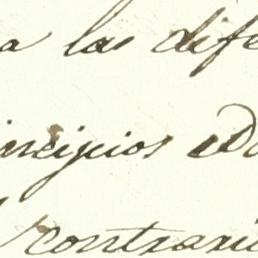 a las dife
incipios
contrari